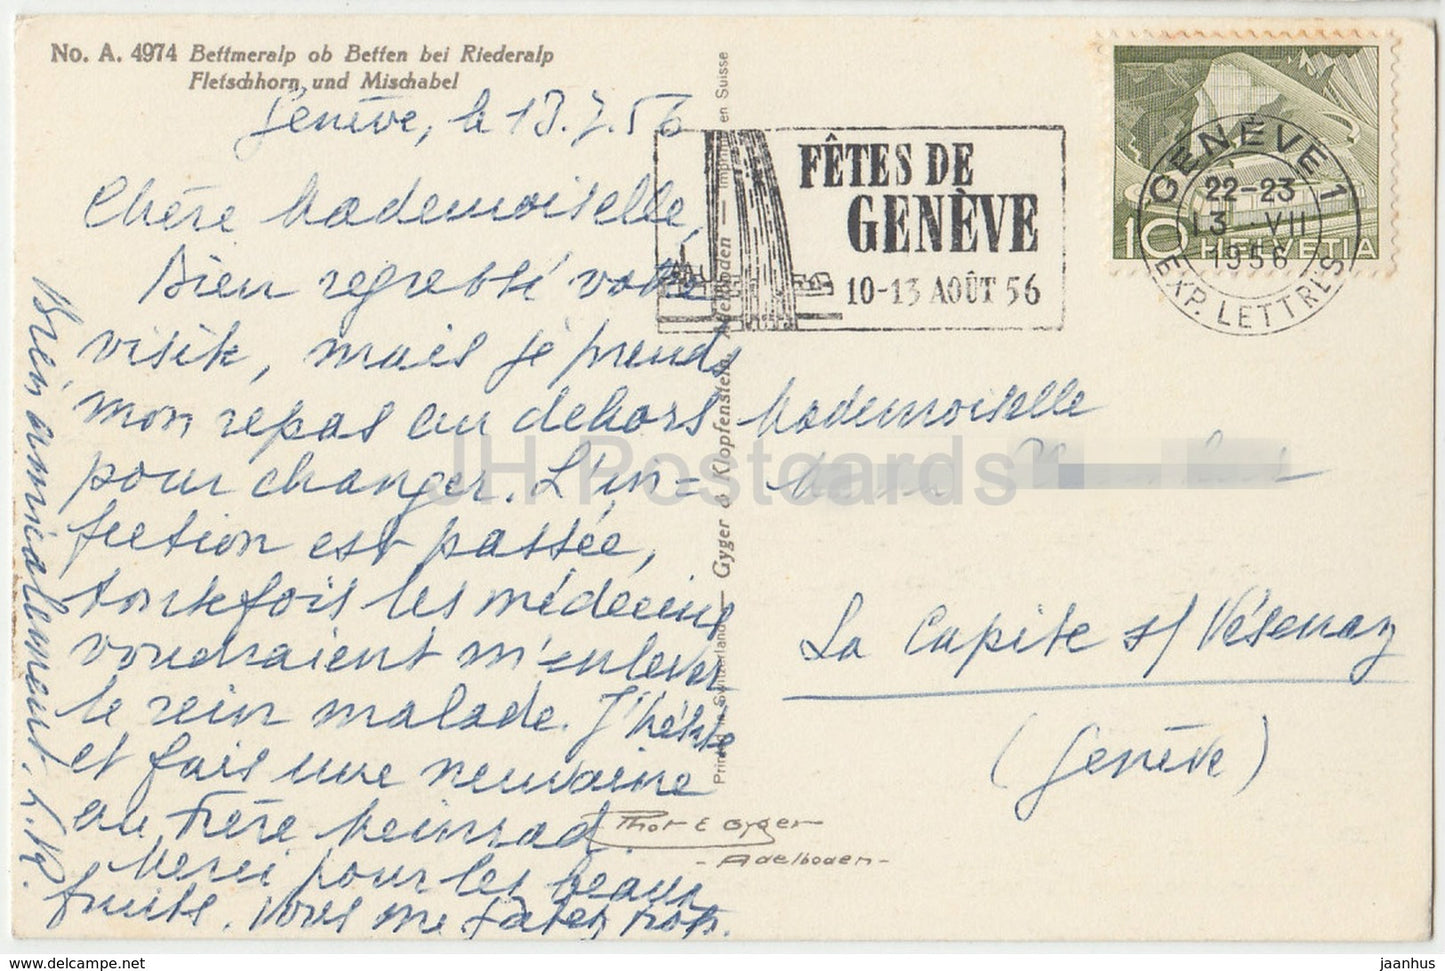 No. A. 4974 Bettmeralp ob Betten bei Riederalp
Fletschhorn und Mischabel
Genève, le 13.7.56
Chère Mademoiselle,
Bien regretté votre
visite, mais je prends
mon repas au dehors
pour changer. L'in=
fection est passée,
toutefois les médecins
voudraient m'enlever
le rein malade. J'hésite
et fais une neuvaine
au Frère Meinrad.
Merci pour les beaux
fruits. Vous me gâtez trop.
Bien amicalement. L.R.
Printed in Switzerland — Gyger & Klopfenstein, Adelboden — Imprimé en Suisse
FÊTES DE
GENÈVE
10-13 AOÛT 56
GENÈVE 1
22-23
13 VII
1956
EXP. LETTRES
10 HELVETIA
Mademoiselle
La Capite s/ Vésenaz
(Genève)
Phot E Gyger
- Adelboden -
JH Postcards
hippostcard.com
jaanhus